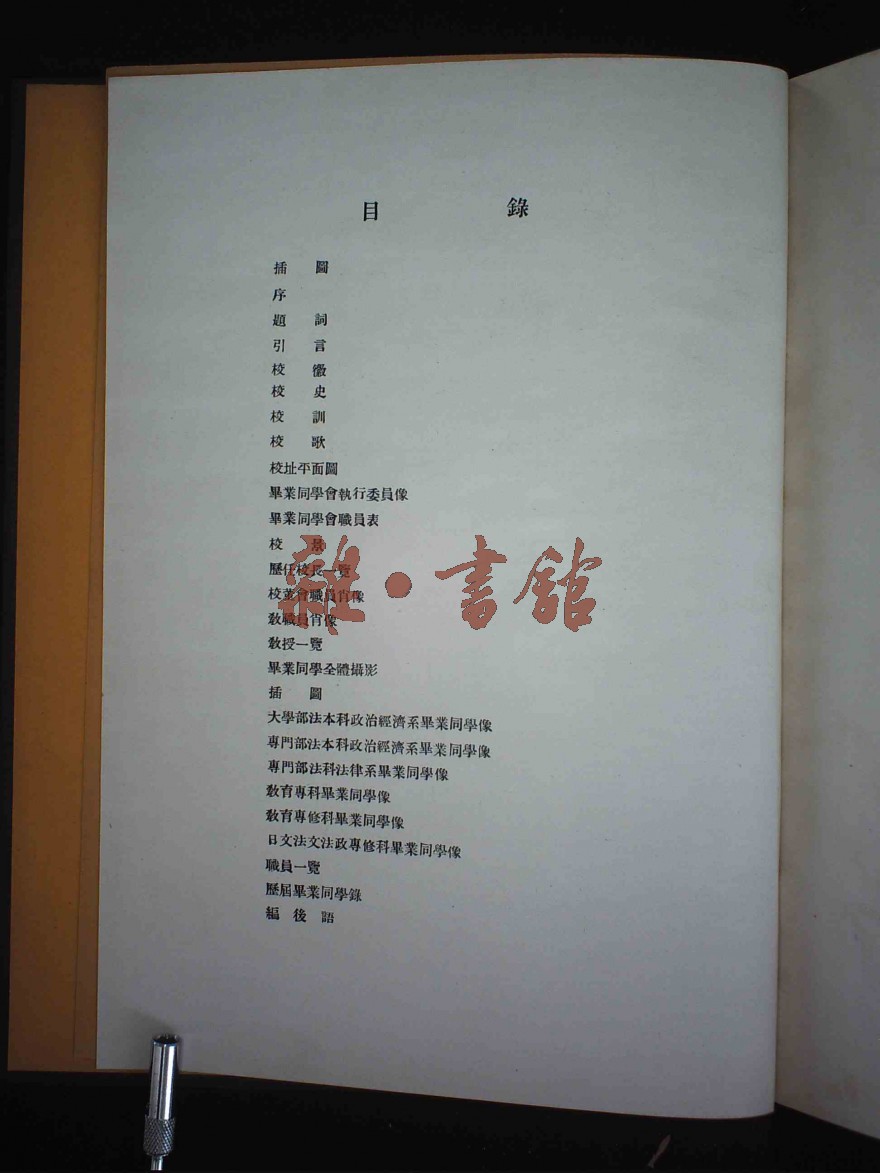 目錄
插圖
序
題詞
引言
校徽
校史
校訓
校歌
校址平面圖
畢業同學會執行委員像
畢業同學會職員表
校景
歷任校長一覽
校董會職員肖像
敎職員肖像
敎授一覽
畢業同學全體攝影
插圖
大學部法本科政治經濟系畢業同學像
專門部法本科政治經濟系畢業同學像
專門部法科法律系畢業同學像
敎育專科畢業同學像
敎育專修科畢業同學像
日文法文法政專修科畢業同學像
職員一覽
歷屆畢業同學錄
編後語
雜·書館